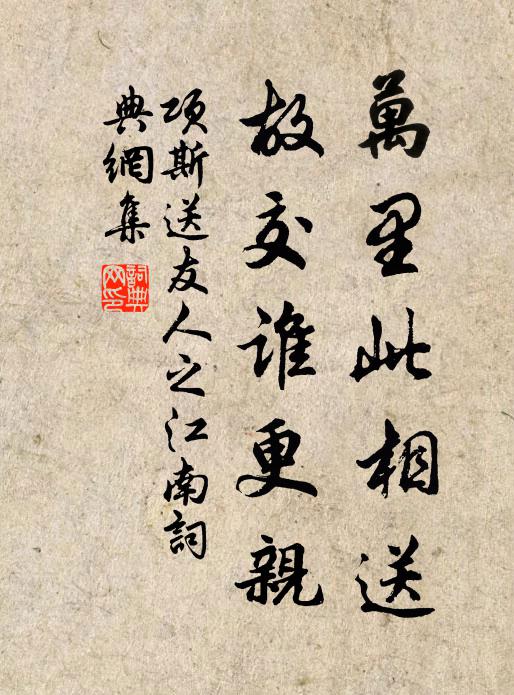 萬里此相送
故交誰更親
項斯送友人之江南詞
典網集
詞典網印